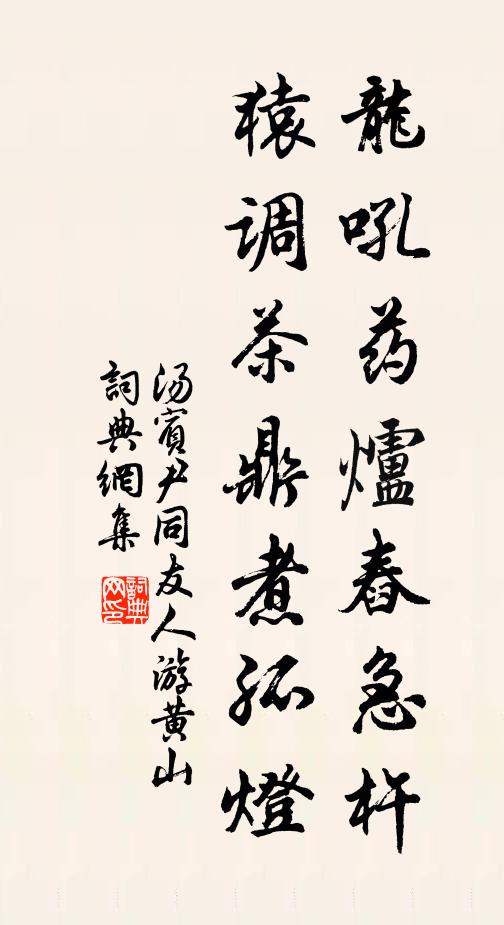 龍吼药爐舂急杵
猿调茶鼎煮孤燈
汤賓尹同友人游黄山
詞典網集
詞典网印